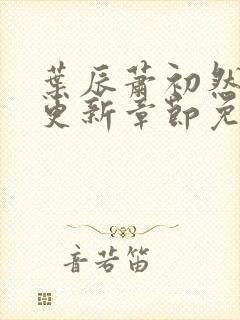 葉辰蕭初然
更新章節免
音若笛